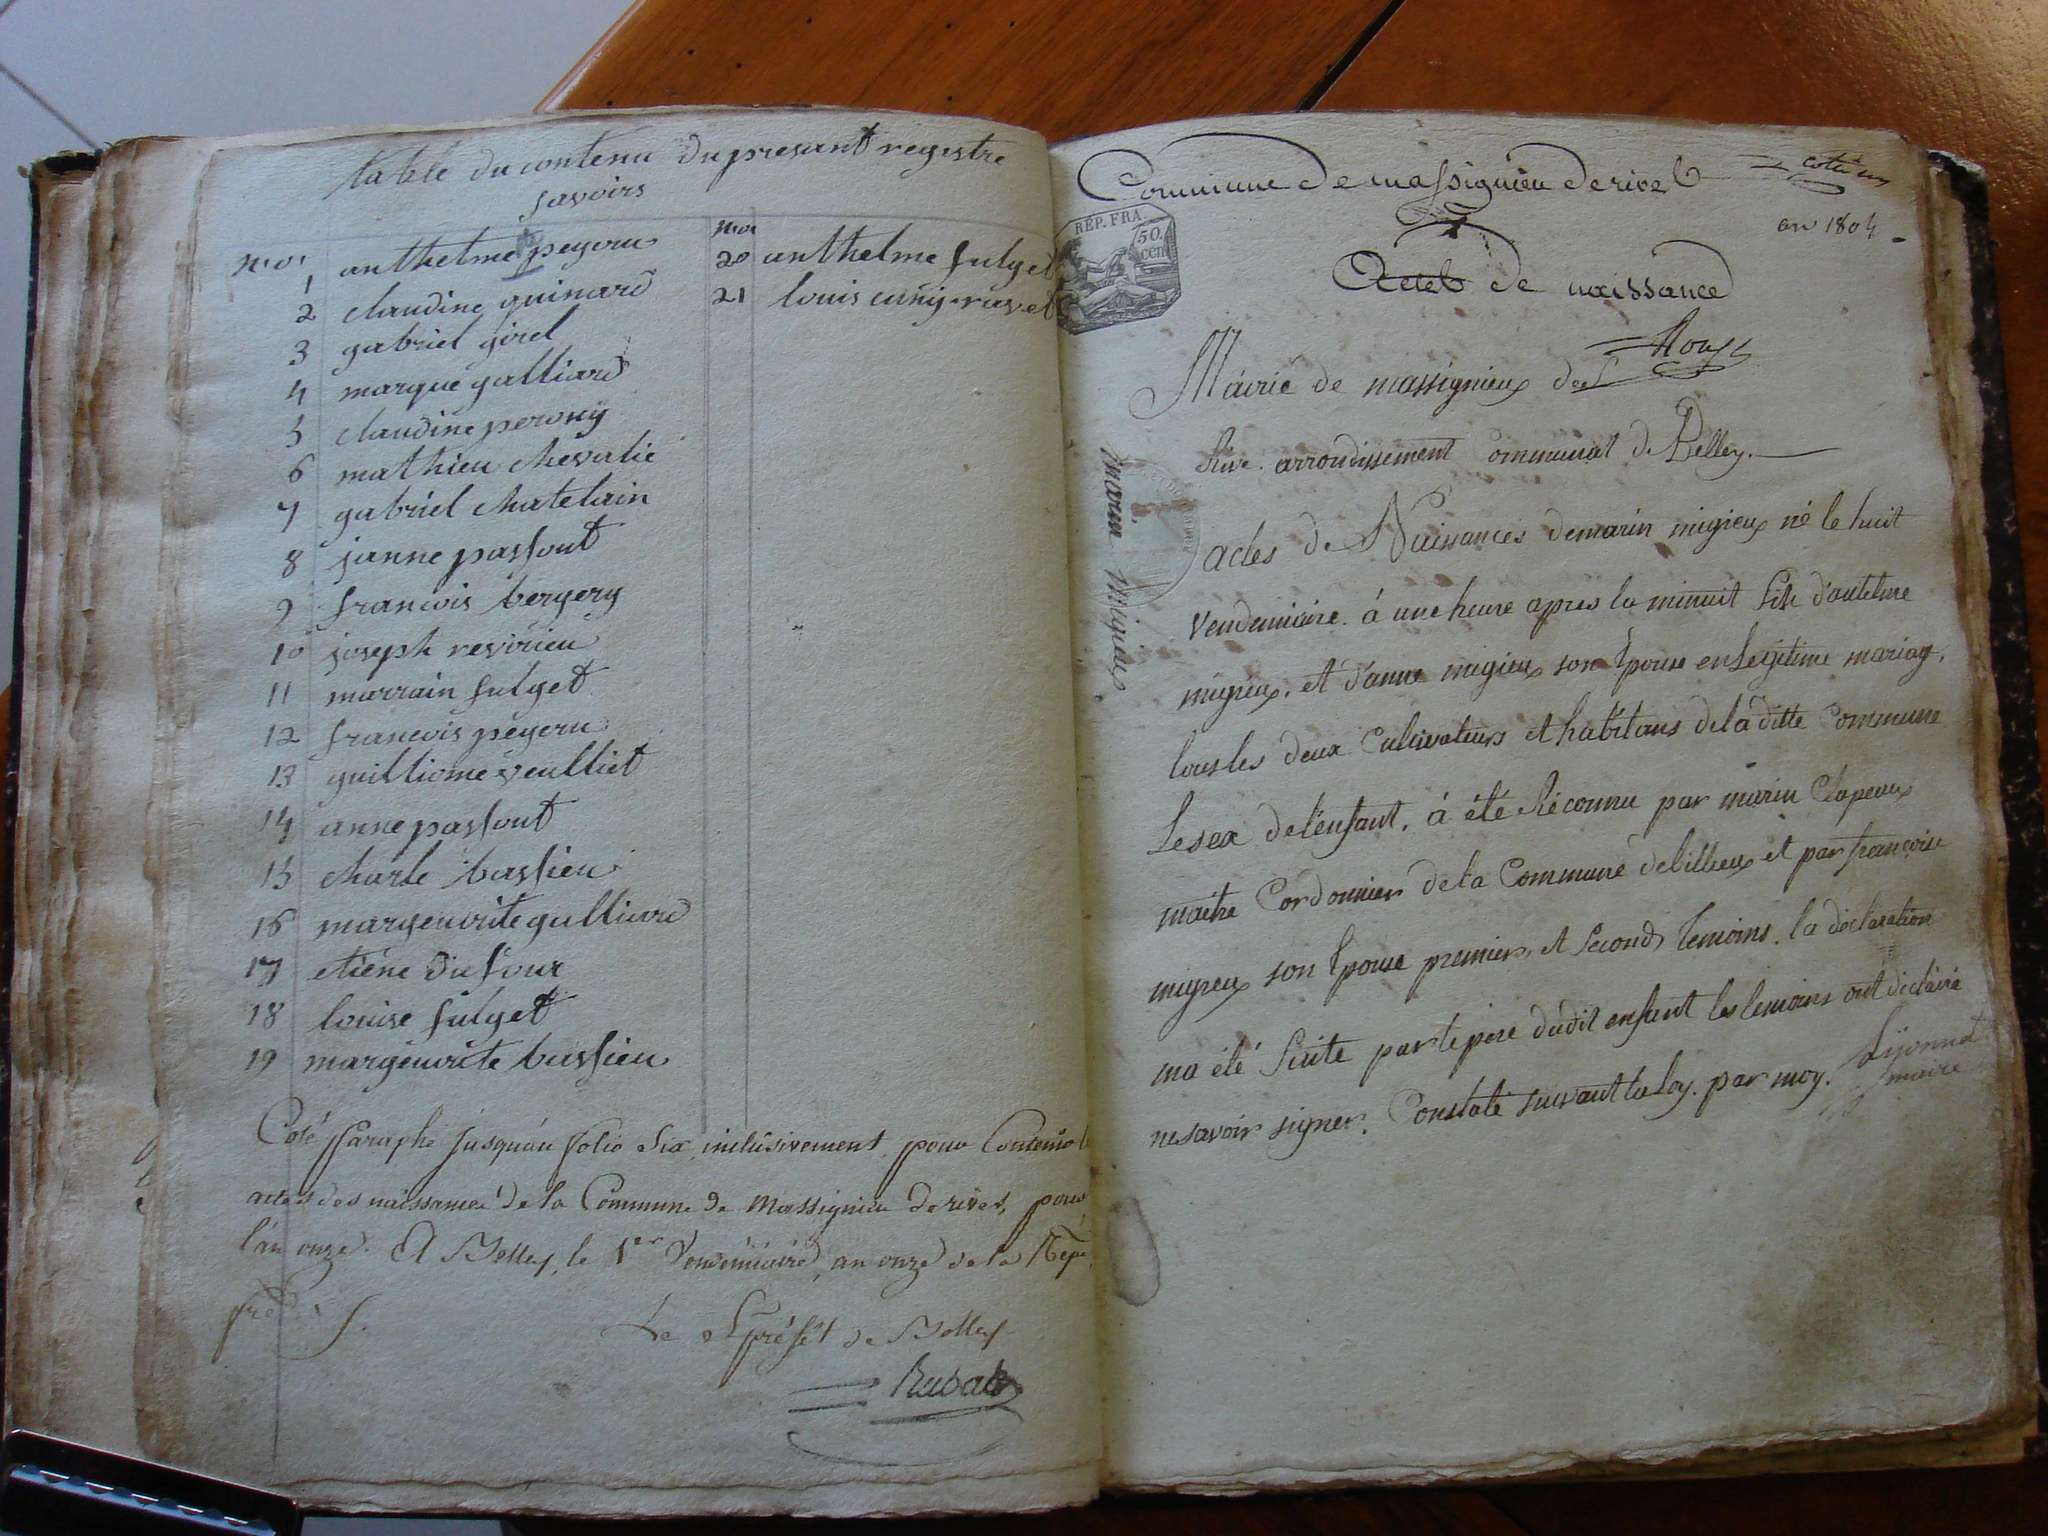 table du contenu du presant registre
savoirs
nros
1 anthelme peyeru
2 claudine guinard
3 gabriel girel
4 marque galliard
5 claudine perony
6 mathieu chevalié
7 gabriel chatelain
8 janne passout
9 francois bergery
10 joseph revirieu
11 marrain fulget
12 francois peyeru
13 guilliome veulliet
14 anne passout
15 charle bassieu
16 margeurite galliard
17 etiéne dufour
18 louise fulget
19 margeurite bassieu
nros
20 anthelme fulget
21 louis
Coté paraphé jusqu'au folio Six inclusivement pour Contenir
actes des naissance de la Commune de Massignieu de rives, pour
l'an onze. A Belley, le 1er Vendémiaire, an onze de la Rép
Le Spréfet de Belley
Rubat
Commune de massignieu de rive
an 1804
RÉP. FRA
50.
cen
Actes de naissance
Roux
Mairie de massignieux de
Rive arrondissement Communal de Belley.
marin Migieux
actes de Naissances de marin migieux né le huit
Vendemiaire à une heure apres la minuit fils d'antelme
migieux, et d'anne migieux son Epouse en Legitime mariag,
tous les deux Cultivateurs et habitans de la ditte Commune
Le sex de l'enfant, à été Réconnu par marin Clapeaux
maitre Cordonnier de la Commune de billieux et par françoise
migieux son Epouse premiers, et Second, temoins. la déclaration
ma été faite par le pere dudit enfant les temoins ont déclaré
ne savoir signer. Constaté suivant la Loy. par moy.
Lijonnet
maire